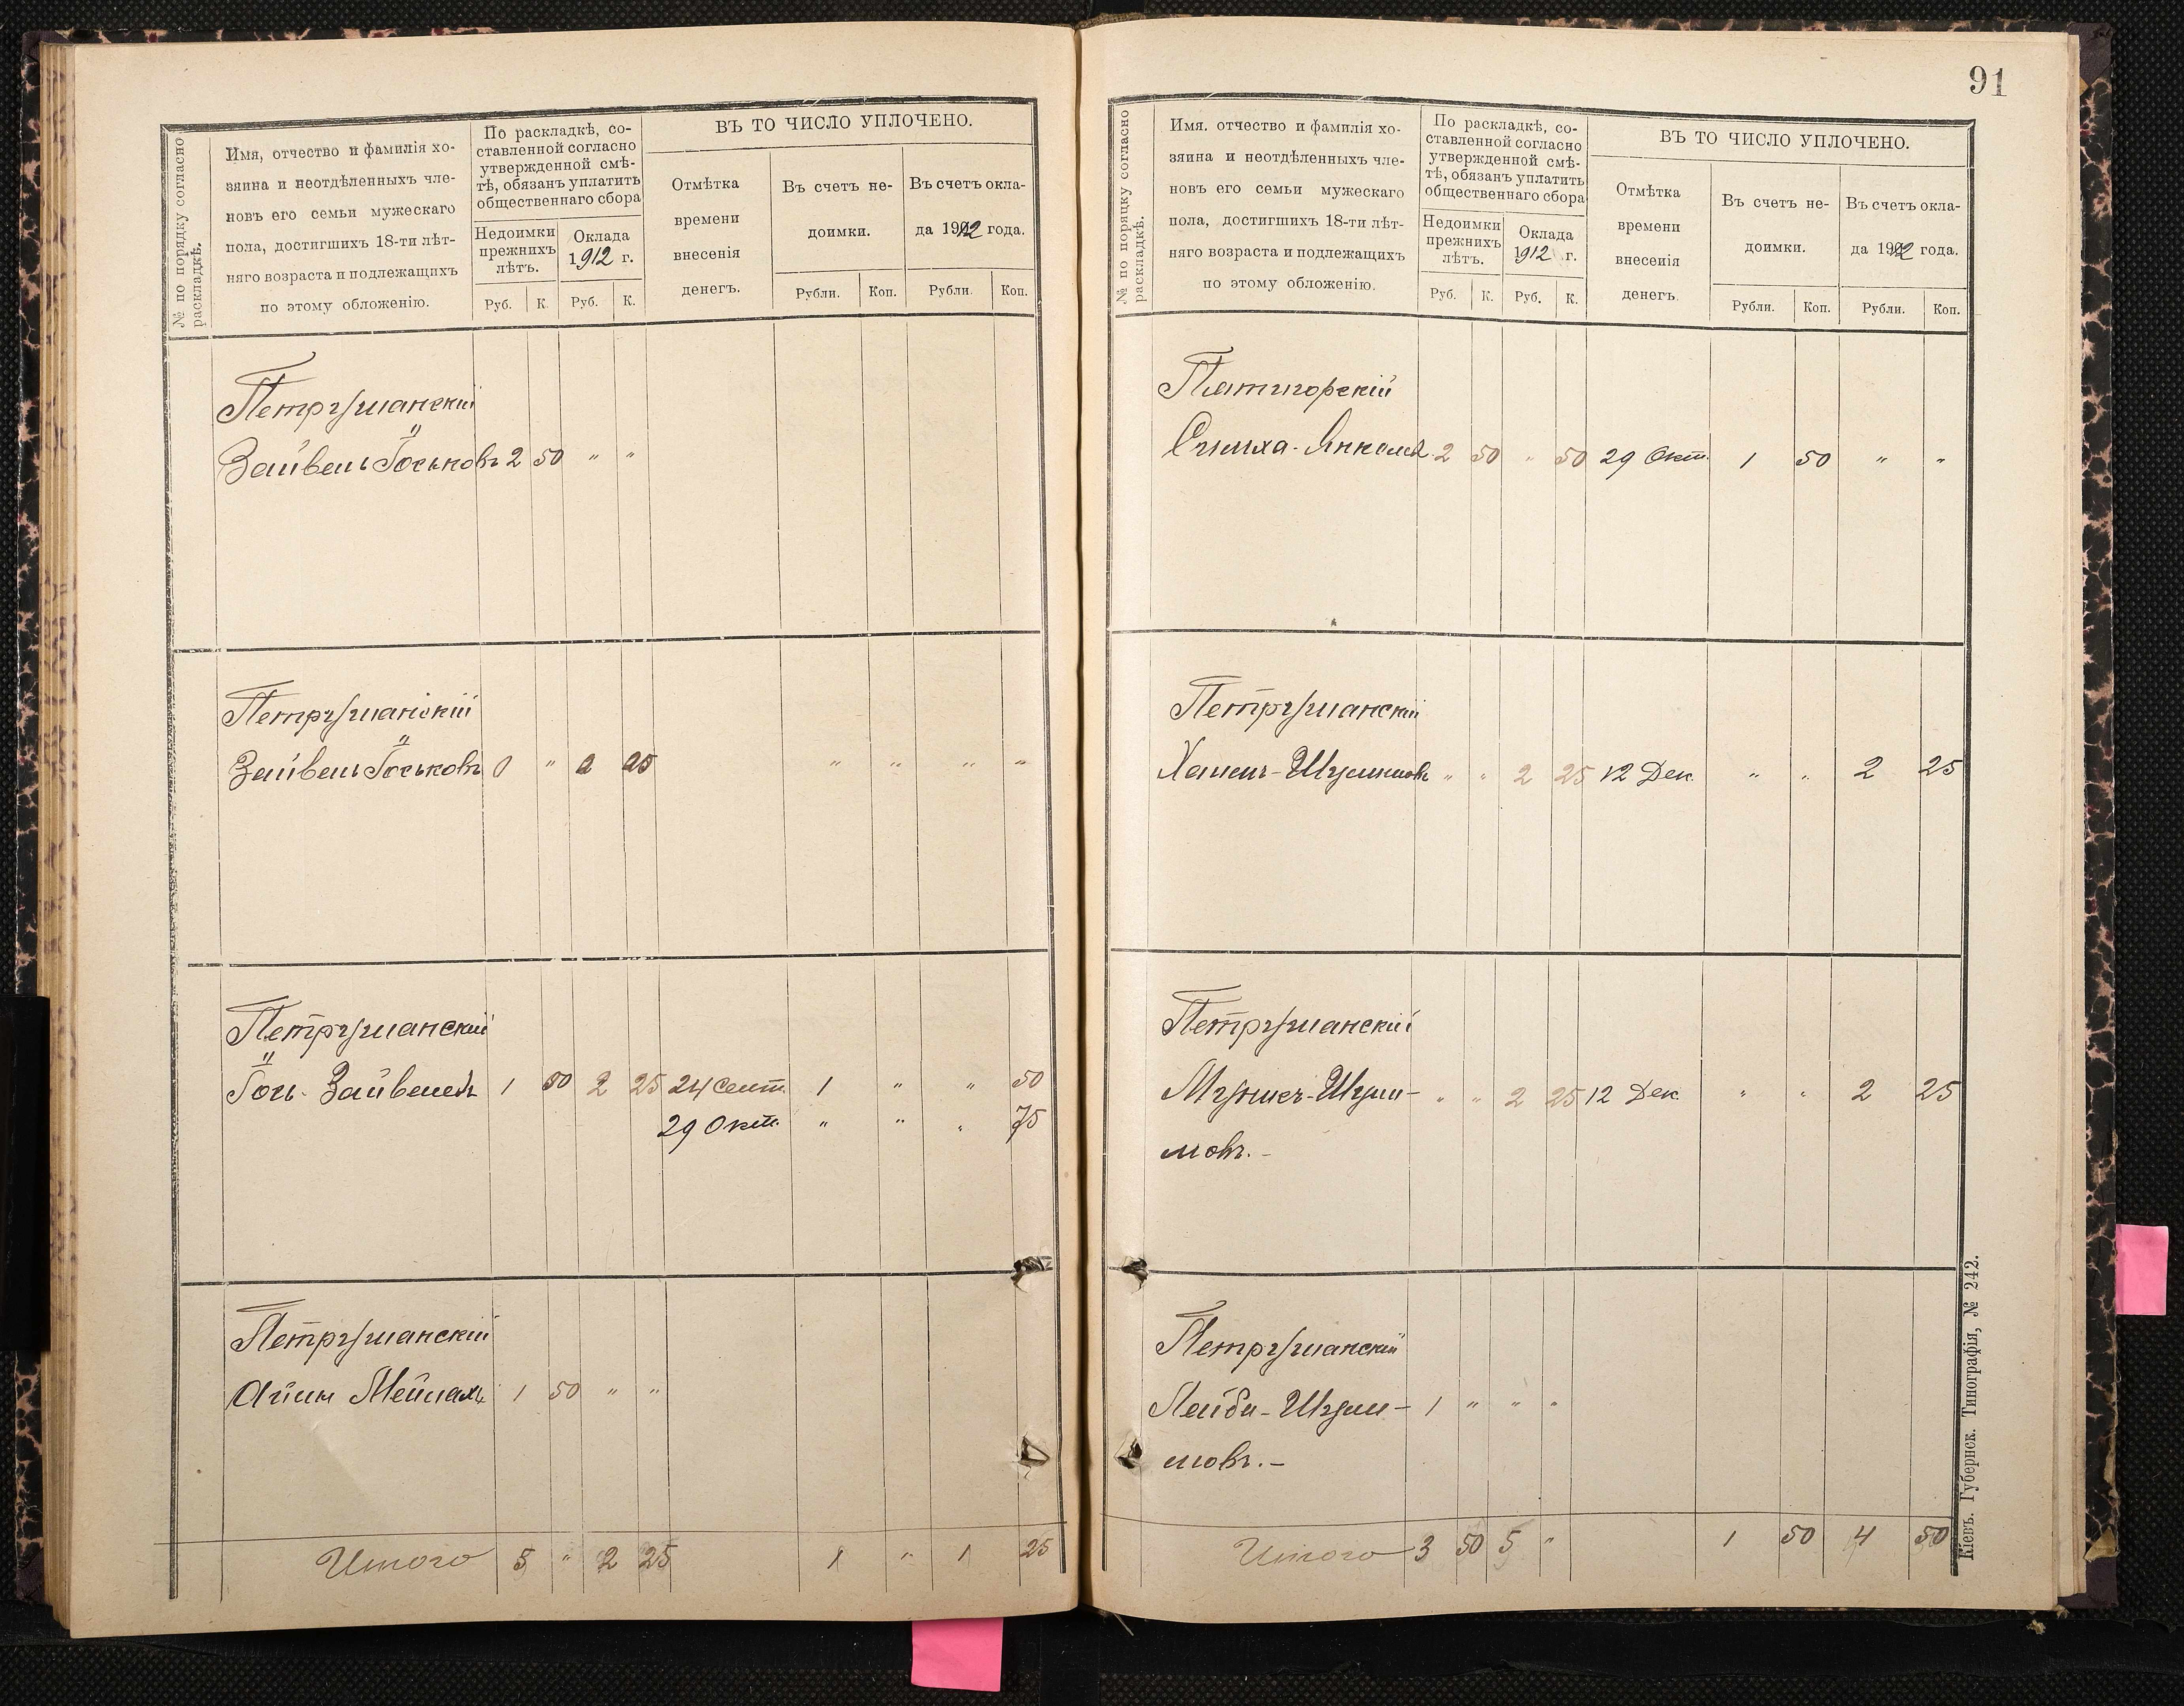 91
№ по порядку согласно раскладкѣ.
Имя, отчество и фамилія хо-
зяина и неотдѣленныхъ чле-
новъ его семьи мужескаго
пола, достигшихъ 18-ти лѣт-
няго возраста и подлежащихъ
по этому обложенію.
По раскладкѣ, со-
ставленной согласно
утвержденной смѣ-
тѣ, обязанъ уплатить
общественнаго сбора
Недоимки
прежнихъ
лѣтъ.
Оклада
1912 г.
Руб. К. Руб. К.
ВЪ ТО ЧИСЛО УПЛОЧЕНО.
Отмѣтка
времени
внесенія
денегъ.
Въ счетъ не-
доимки.
Въ счетъ окла-
да 1912 года.
Рубли. Коп. Рубли. Коп.
Петрушанскій
Зайвель Іоськовъ 2 50 " "
Петрушанскій
Зайвель Іоськовъ " 2 25 " " " "
Петрушанскій
Іось Зайвелев 1 50 2 25 24 Сент. 1 " " 50
29 Окт. " " " 75
Петрушанскій
1 50 " "
Итого 5 " 2 25 1 " 1 25
№ по порядку согласно раскладкѣ.
Имя, отчество и фамилія хо-
зяина и неотдѣленныхъ чле-
новъ его семьи мужескаго
пола, достигшихъ 18-ти лѣт-
няго возраста и подлежащихъ
по этому обложенію.
По раскладкѣ, со-
ставленной согласно
утвержденной смѣ-
тѣ, обязанъ уплатить
общественнаго сбора
Недоимки
прежнихъ
лѣтъ.
Оклада
1912 г.
Руб. К. Руб. К.
ВЪ ТО ЧИСЛО УПЛОЧЕНО.
Отмѣтка
времени
внесенія
денегъ.
Въ счетъ не-
доимки.
Въ счетъ окла-
да 1912 года.
Рубли. Коп. Рубли. Коп.
Пятигорскій
Симха-Янкелев. 2 50 " 50 29 Окт. 1 50 " "
Петрушанскій
" " 2 25 12 Дек. " " 2 25
Петрушанскій
" " 2 25 12 Дек " " 2 25
мовъ.-
Петрушанскій
Лейби-Шули- 1 " " "
мовъ.-
Итого 3 50 5 " 1 50 4 50
Кіевъ. Губернск. Типографія, № 242.